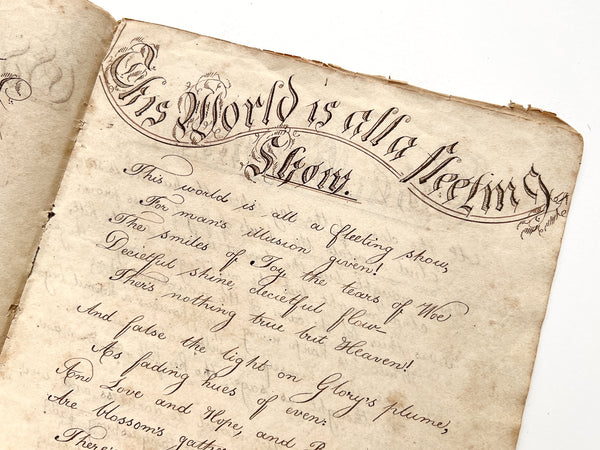 This World is all a fleeting
Show.
This world is all a fleeting show,
For man's illusion given!
The smiles of Joy, the tears of Woe
Decietful shine, decietful flow
Ther's nothing true but Heaven!
And false the light on Glory's plume,
As fading hues of even:
And Love and Hope, and
Are blossom's gathe
There's